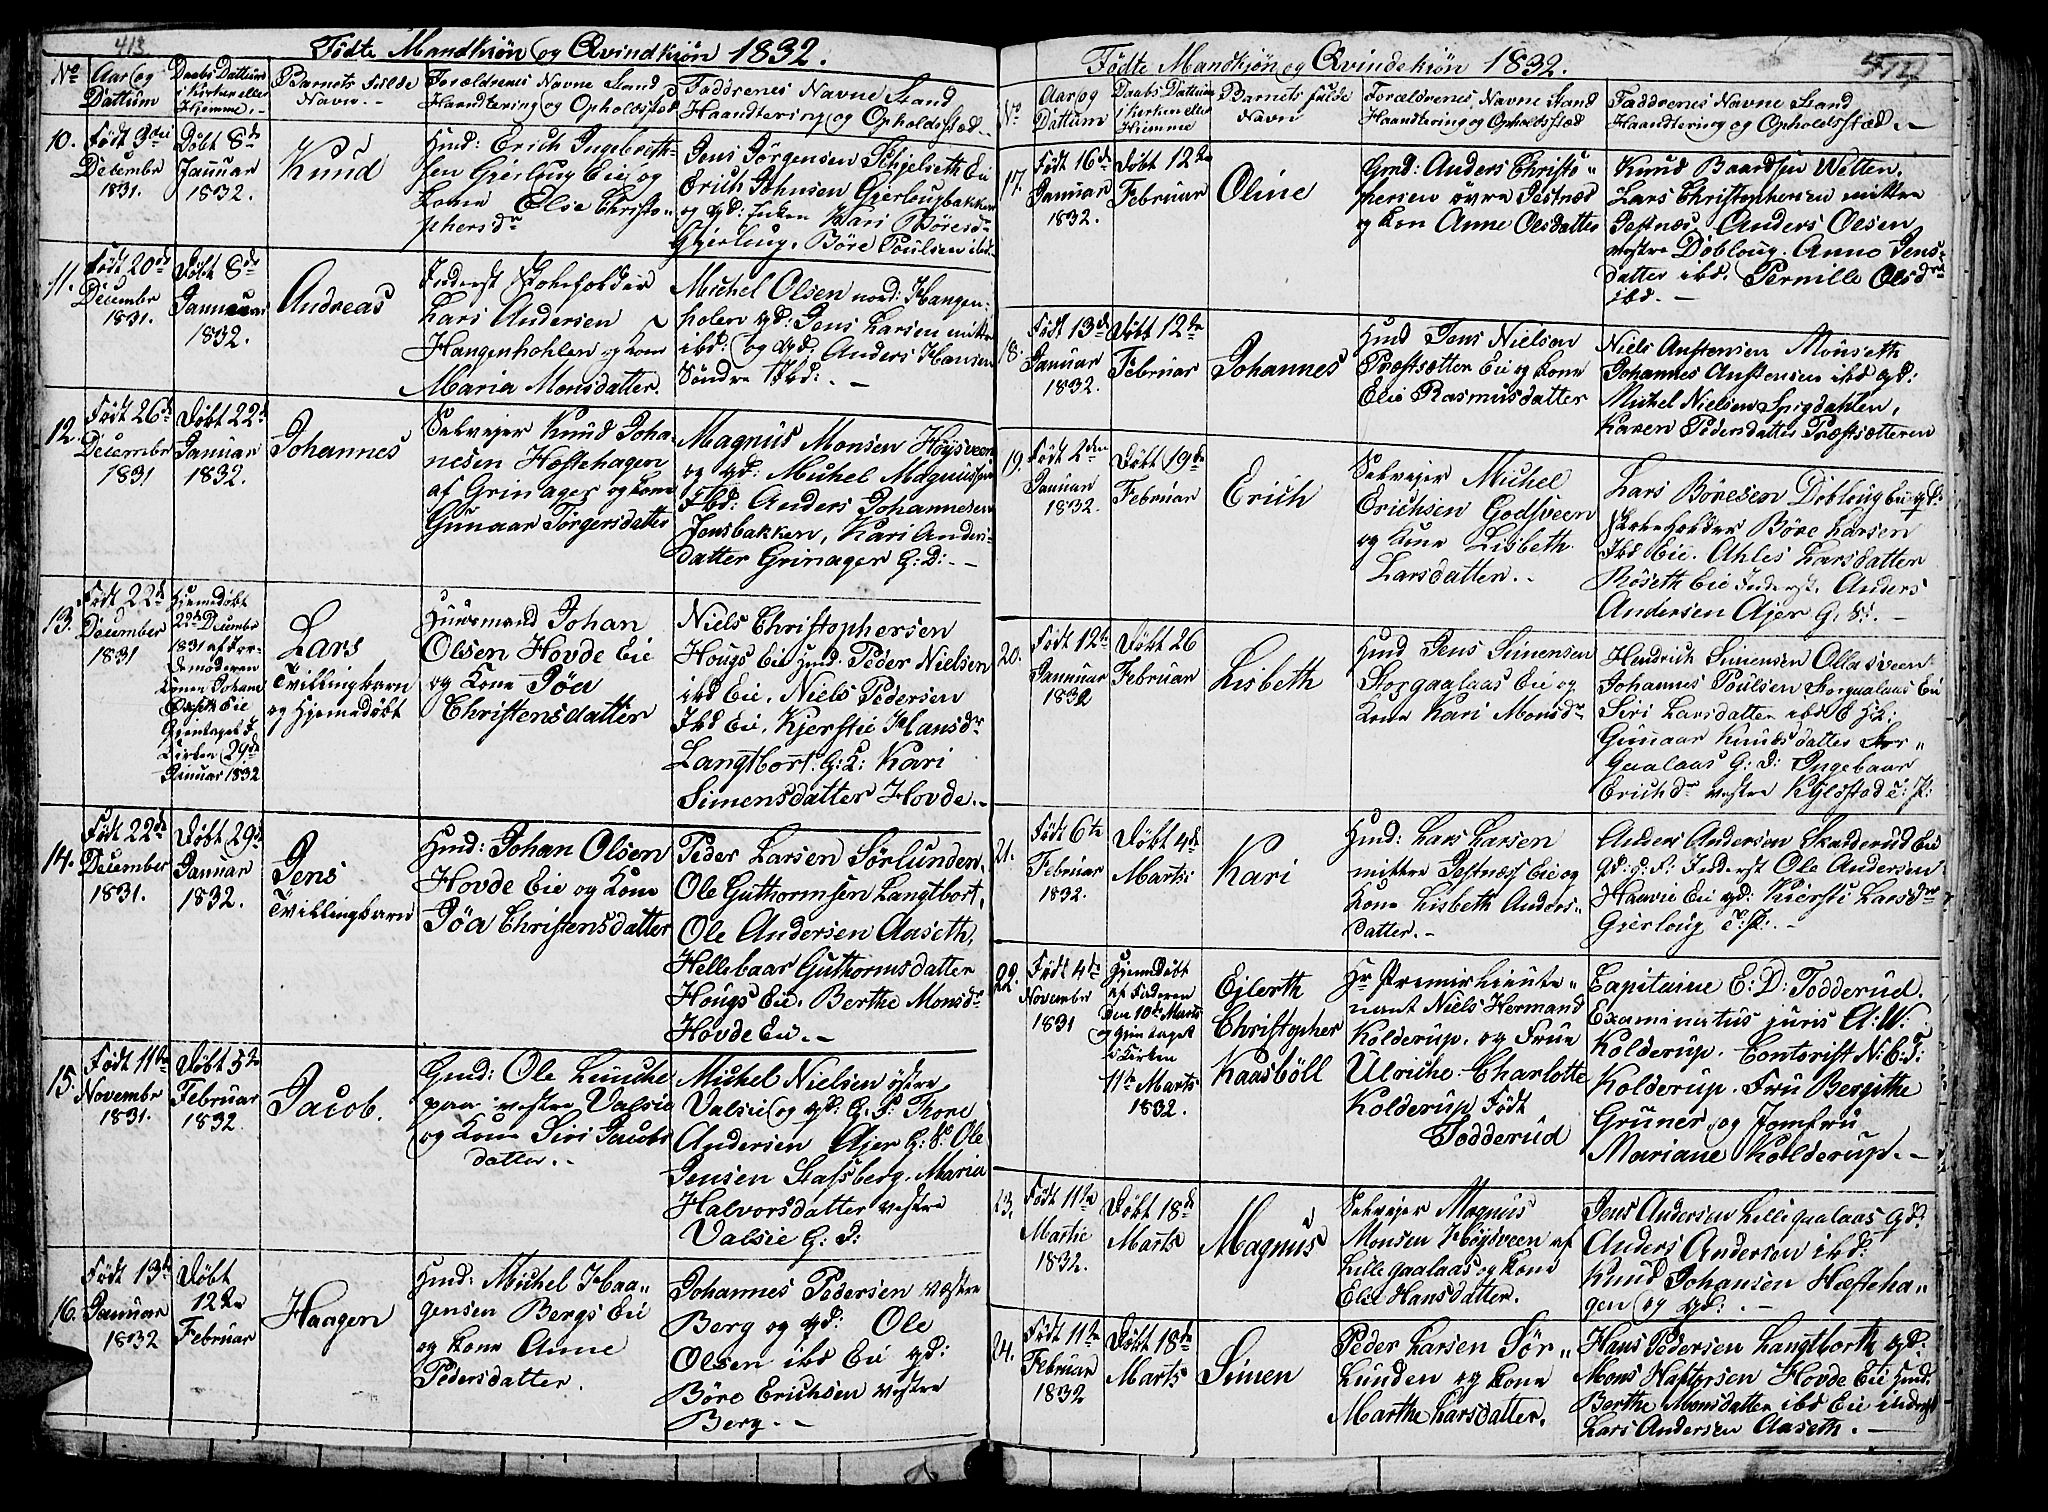 413
Fødte Mandkiøn og Qvindkiøn 1832.
No
Aar og Dattum
Daabs Dattum i Kirken eller Hiemme.
Barnets Fulde Navn.
Forældrenes Navne Stand Haandtering og Opholdsted
Faddrenes Navne Stand Haandtering og Opholdsstæd.
10.
Født 9de
December
1831.
Døbt 8de
Januar
1832.
Knud
Huusmd: Erich Ingebreth-
sen Gierloug Eie og
Kone Elie Christo-
phersdr
Jens Jørgensen Schjelseth Eie
Erich Johnsen Gierlougbakken
og qd: Enken Kari Børesdr
Gjerloug. Børe Poulsen ibd.
11.
Født 20de
December
1831.
Døbt 8de
Januar
1832.
Andreas
Inderst Skoleholder
Lars Andersen
Hangenhohlen og Kone
Maria Monsdatter.
Michel Olsen nord: Hangen-
holen qd: Jens Larsen mittre
ibd: og qd: Anders Hansen
Søndre Ibd: -
12.
Født 26de
December
1831
Døbt 22de
Januar
1832.
Johannes
Selvejer Knud Joha-
nesen Hæstehagen
af Grinager og Kone
Gunaar Torgersdatter
Magnus Monsen Høysveen
og qd: Michel Magnussen
Ibd: Anders Johannesen
Jonsbakken, Kari Anders-
datter Grinager G: D: -
13.
Født 22de
December
1831
Hjemedøbt
22de December
1831 af Jor-
demoderen
Konen Johane
Eie
Gjentaget I
Kirken 29de
Januar 1832
Lars
Tvillingbarn
og Hjemedøbt
Huusmand Johan
Olsen Hovde Eie
og Kone Jøa
Christensdatter
Niels Christophersen
Hougs Eie Hmd: Peder Nielsen
ibd Eie. Niels Pedersen
Ibd Eie. Kjerstie Hansdr
Langtbort. G: D: Kari
Simensdatter Hovde. -
14.
Født 22de
December
1831.
Døbt 29de
Januar
1832.
Jens
Tvillingbarn
Hmd: Johan Olsen
Hovde Eie og Kone
Jøa Christensdatter
Peder Larsen Sørlunden,
Ole Guthormsen Langtbort.
Ole Andersen Aaseth,
Hellebaar Guthormsdatter
Hougs Eie. Berthe Monsdr
Hovde Eie. -
15.
Født 11te
Novembr
1831.
Døbt 5te
Februar
1832.
Jacob.
Gmd: Ole Lunche
paa vestre Valsie
og Kone Siri Jacobs
datter. -
Michel Nielsen østre
Valsie og qd: G. S: Thore
Andersen Ajer G: S: Ole
Jensen Stafsberg. Maria
Halvorsdatter vestre
Valsie G: D:
16.
Født 13de
Januar
1832
Døbt
12te
Februar
Haagen
Hmd: Michel Haa-
gensen Bergs Eie
og Kone Anne
Pedersdatter.
Johannes Pedersen væstre
Berg og qd: Ole
Olsen ibd Eie qd:
Børe Erichsen vestre
Berg. -
414
Fødte Mandkjøn og Qvindekiøn 1832.
No
Aar og Dattum
Daabs Dattum i Kirken eller Hiemme
Barnets fulde Navn
Forældrenes Navne Stand Haandtering og Opholdsstæd
Faddrenes Navne Stand Haandtering og Opholdsstæd. -
17.
Født 16de
Januar
1832.
Døbt 12te
Februar
Oline
Gmd: Anders Christo-
phersen øvre Jestnæs
og Kone Anne Olsdatter
Knud Baardsen Wetten.
Lars Christophersen mittre
Jestnæs. Anders Olsen
vestre Dobloug. Anne Jens-
datter ibd. Pernille Olsdr
ibd. -
18.
Født 13de
Januar
1832.
Døbt 12te
Februar
Johannes
Hmd Jens Nielsen
Præstsætter Eie og Kone
Elie Rasmusdatter
Niels Anstensen Monseth
Johannes Anstensen ibd qd:
Michel Nielsen Spigdahlen,
Karen Pedersdatter Præstsætteren
19.
Født 2den
Januar
1832.
Døbt 19de
Februar
Erich
Selvejer Michel
Erichsen Godsveen
og Kone Lisbeth
Larsdatter. -
Lars Børesen Dobloug Eie qd:
Skoleholder Børe Larsen
Ibd Eie. Ahles Larsdatter
Røseth Eie Inderst. Anders
Andersen Ajer G. S: -
20.
Født 12te
Januar
1832
Døbt 26
Februar
Lisbeth
Hmd Jens Simensen
Storgaalaas Eie og
Kone Kari Monsdr
Hendrich Simensen Ollasveen
Johannes Poulsen Storgaalaas Eie
Siri Larsdatter ibd E
Gunaar Knudsdatter Stor-
gaalaas G: D: Ingebaar
Erichdr vestre Kylstad E: P:
21.
Født 6te
Februar
1832.
Døbt 4de
Marts
Kari
Hmd: Lars Larsen
mittre Jestnæs Eie og
Kone Lisbeth Anders-
datter. -
Anders Andersen Skarderud Eie
Inderst Ole Andersen
Haavie Eie qd: Kierstie Larsdr
Gierloug
22.
Født 4de
November
1831
Hjemedøbt
af Faderen
den 10de Marts
og Gjentaget
i Kirken
11te Marts
1832.
Ejlerth
Christopher
Kaasbøll
Hr Premierlieute-
nant Niels Hermand
Kolderup. og Frue
Ulriche Charlotte
Kolderup Født
Todderud
Capitaine E: D: Todderud.
Examinatus juris A: W:
Kolderup. Contorist N: C: F:
Kolderup. Fru Bergithe
Gruner og Jomfru
Mariane Kolderup. -
23.
Født 11te
Martie
1832.
Døbt 18de
Marts
Magnus
Selvejer Magnus
Monsen Høysveen af
Lille Gaalaas og Kone
Elie Hansdatter.
Jens Andersen Lillegaalaas qd:
Anders Andersen ibd:
Knud Johansen Hæsteha-
gen og qd: -
24.
Født 11te
Februar
1832
Døbt 18de
Marts
Simen
Peder Larsen Sør-
Lunden og Kone
Marthe Larsdatter.
Hans Pedersen Langtborth qd:
Mons Hafforsen Hovde Eie Hmd.
Berthe Monsdatter ibd Eie inderst
Lars Andersen Aaseth. -